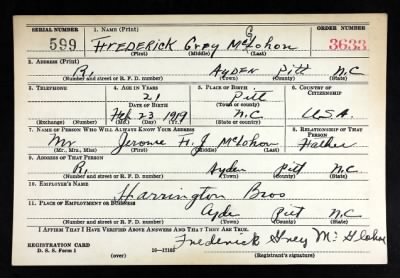 SERIAL NUMBER 1. NAME (Print) ORDER NUMBER
599 FREDERICK Grey McGlohon 3633
(First) (Middle) (Last)
2. ADDRESS (Print)
R1 AYDEN Pitt N.C
(Number and street or R. F. D. number) (Town) (County) (State)
3. TELEPHONE 4. AGE IN YEARS 5. PLACE OF BIRTH 6. COUNTRY OF CITIZENSHIP
21 Pitt
DATE OF BIRTH (Town or county)
Feb 23 1919 N.C U.S.A.
(Exchange) (Number) (Mo.) (Day) (Yr.) (State or country)
7. NAME OF PERSON WHO WILL ALWAYS KNOW YOUR ADDRESS 8. RELATIONSHIP OF THAT PERSON
Mr Jerome H. J McGlohon Father
(Mr., Mrs., Miss) (First) (Middle) (Last)
9. ADDRESS OF THAT PERSON
R1 Ayden Pitt N.C
(Number and street or R. F. D. number) (Town) (County) (State)
10. EMPLOYER'S NAME
Harrington Bros
11. PLACE OF EMPLOYMENT OR BUSINESS
Ayde Pitt N.C
(Number and street or R. F. D. number) (Town) (County) (State)
I AFFIRM THAT I HAVE VERIFIED ABOVE ANSWERS AND THAT THEY ARE TRUE.
REGISTRATION CARD
D. S. S. Form 1 Frederick Grey McGlohon
(Registrant's signature)